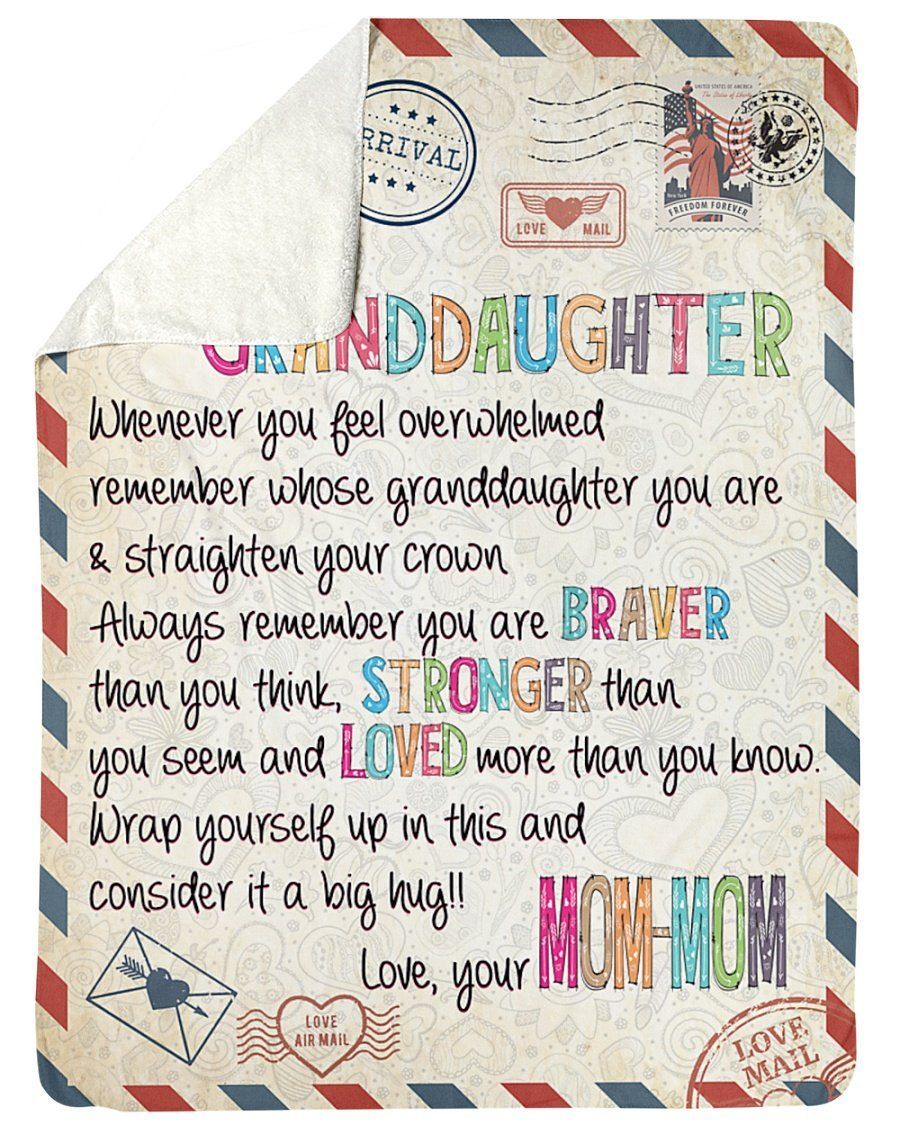 RRIVAL
UNITED STATES OF AMERICA
The Statue of Liberty
5c
New York
FREEDOM FOREVER
LOVE MAIL
GRANDDAUGHTER
Whenever you feel overwhelmed
remember whose granddaughter you are
& straighten your crown
Always remember you are BRAVER
than you think, STRONGER than
you seem and LOVED more than you know.
Wrap yourself up in this and
consider it a big hug!!
Love, your MOM-MOM
LOVE
AIR MAIL
LOVE
MAIL